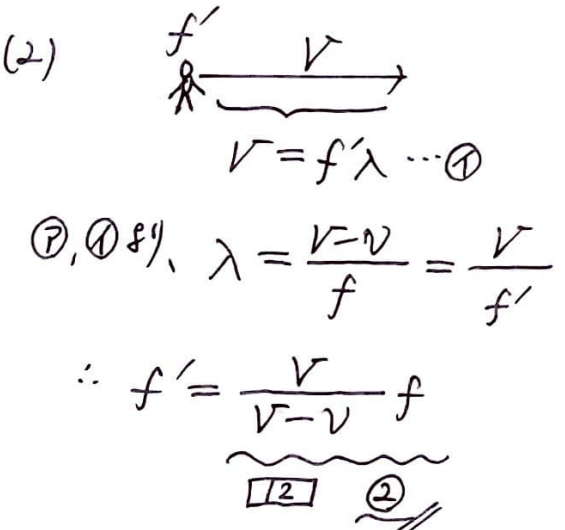 (2) f′ V
V = f′λ …㋑
㋐, ㋑より、 λ = (V−v)/f = V/f′
∴ f′ = V/(V−v) f
12 ②